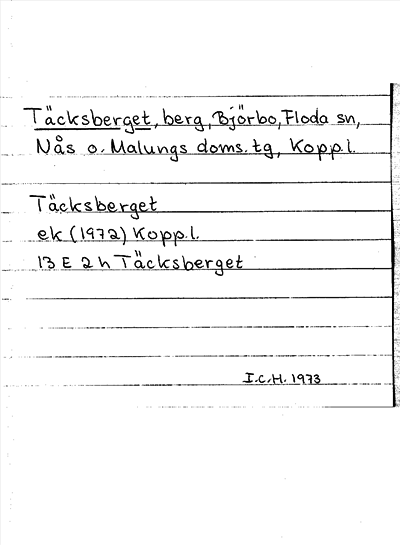 Täcksberget, berg, Björbo, Floda sn,
Nås o. Malungs doms. tg, Kopp.l.
Täcksberget
ek (1972) Kopp.l.
13 E 2 h Täcksberget
I.C.H. 1973